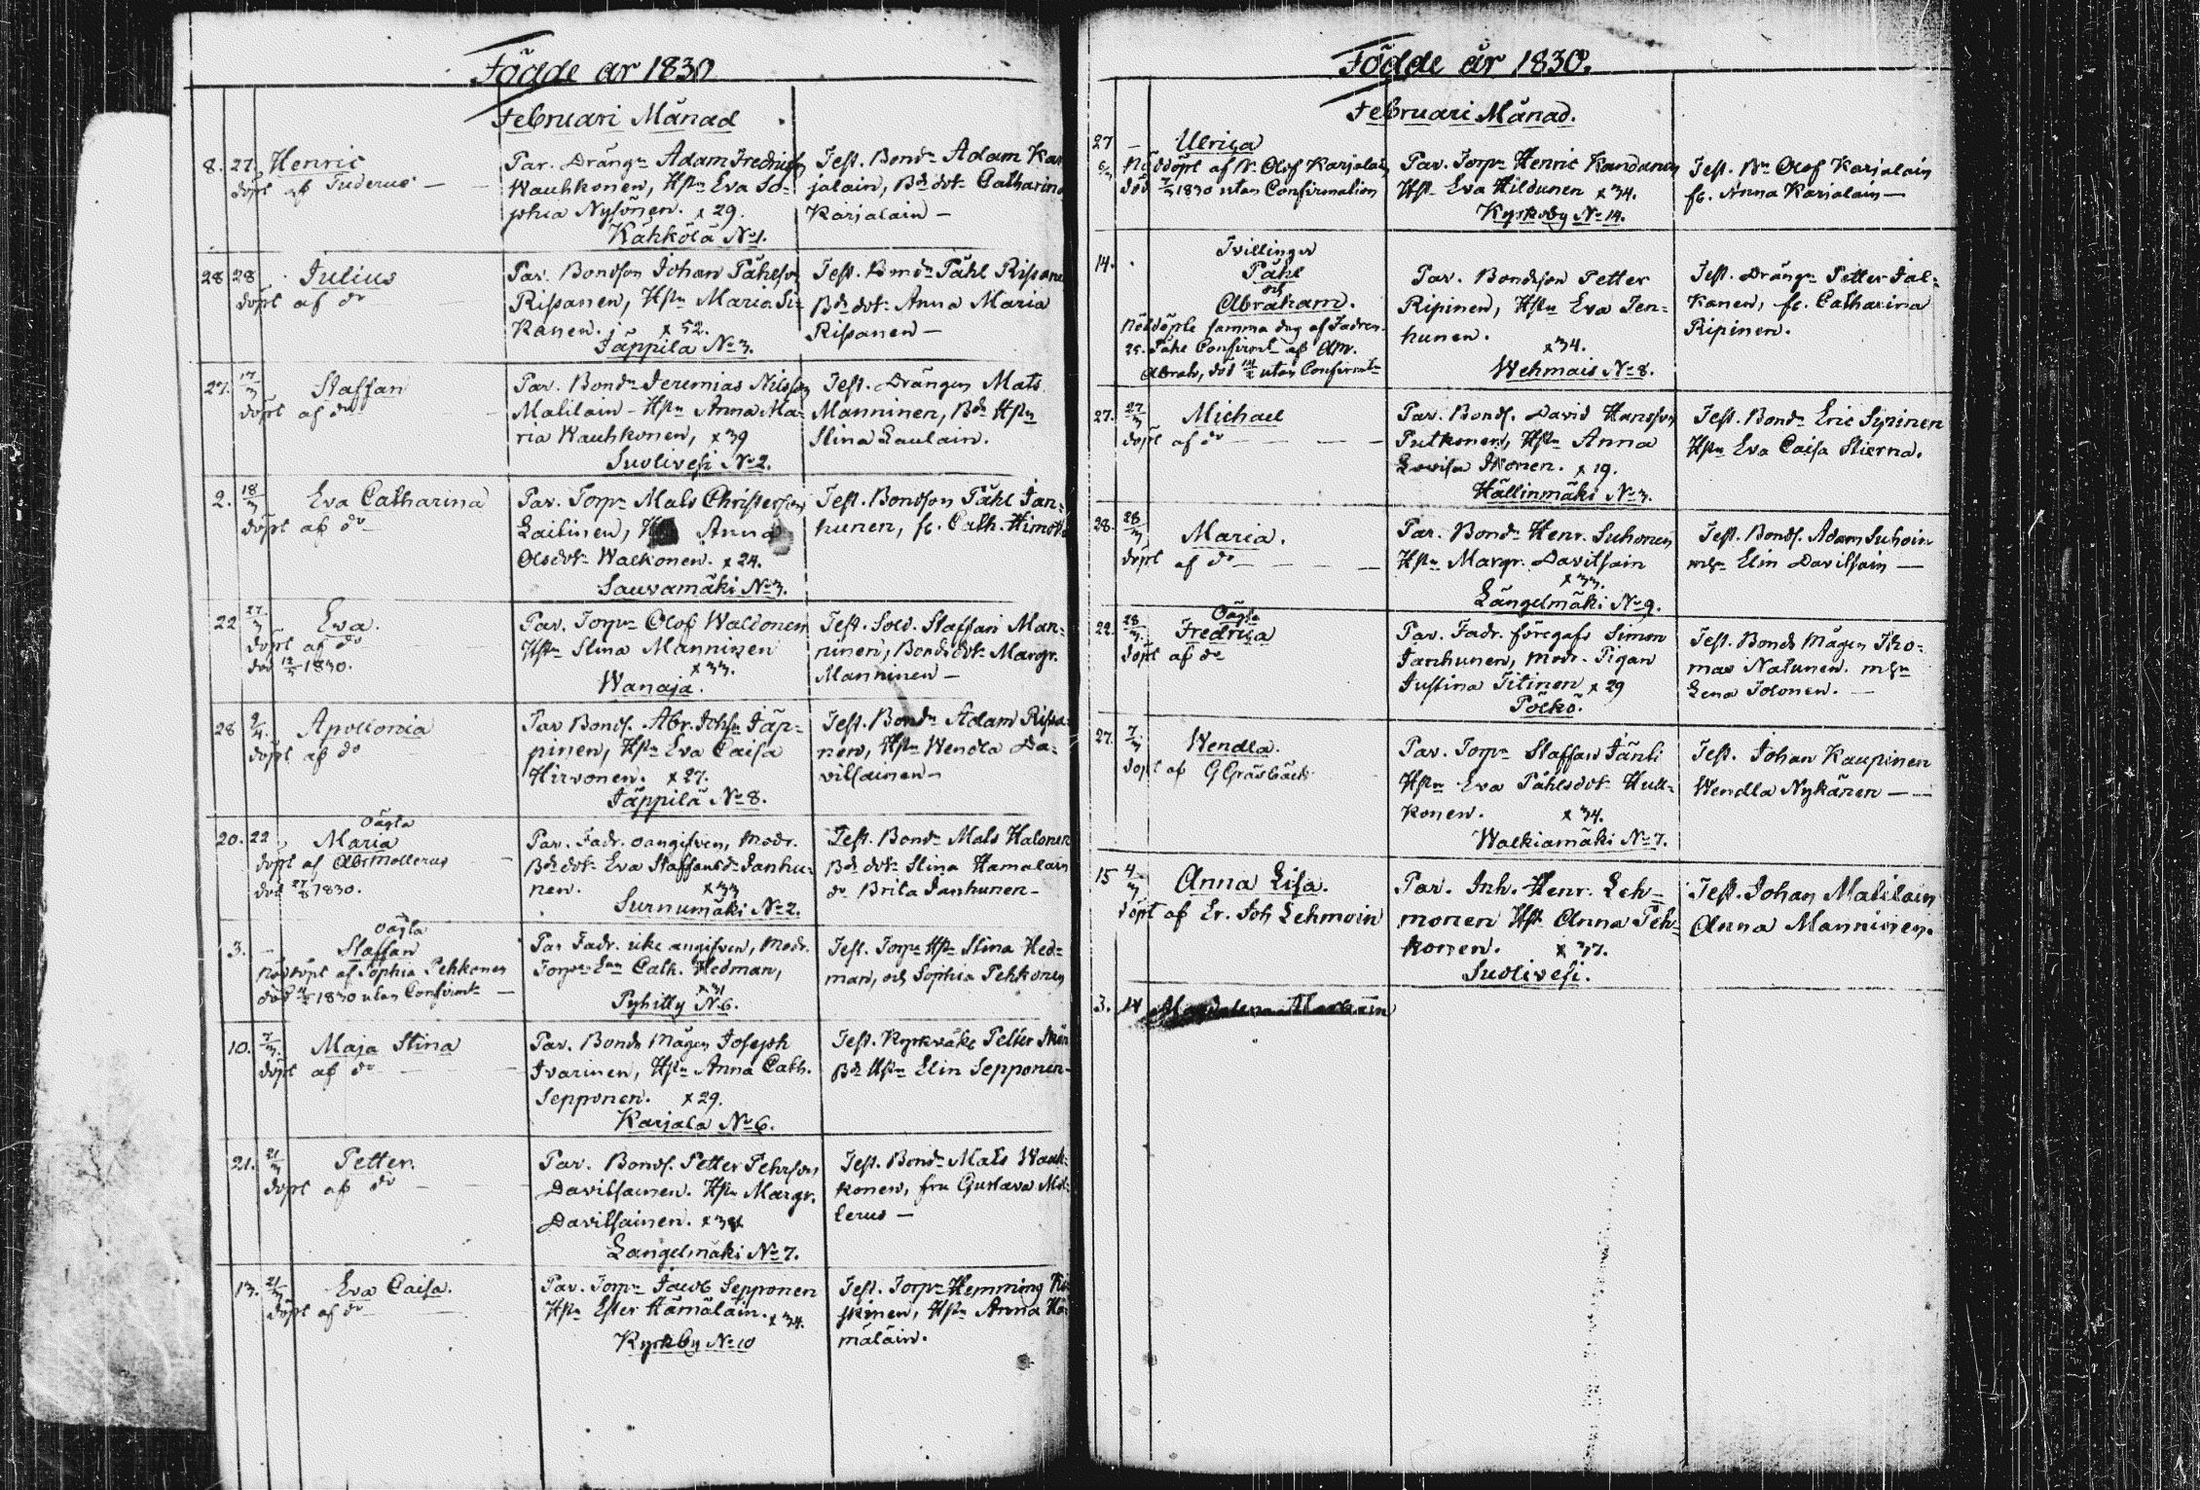 Födde år 1830
Februari Månad
8. 27. Henric
döpt af Tuderus —
Par. Dräng:n Adam Fredricsson
Wauhkonen, Hst:u Eva So-
phia Nysönen. x 29.
Kähkölä N:o 1.
Test. Bond:n Adam Kar
jalain, B:de dotr Catharina
Karjalain —
28 28 Julius
döpt af d:o
Par. Bondson Johan Påhlson
Rissanen, Hst:u Maria Si-
kanen. x 52.
Jäppilä N:o 3.
Test. Bond:n Påhl Rissanen
B:de dotr Anna Maria
Rissanen —
27. 17/3 Staffan
döpt af d:o
Par. Bond:n Jeremias Nilsson
Matilain — Hst:u Anna Ma-
ria Wauhkonen, x 39
Suolivesi N:o 2.
Test. Drängen Mats
Manninen, B:de Hst:u
Stina Laulain.
2. 18/3 Eva Catharina
döpt af d:o
Par. Torp:r Mats Christerson
Laitinen, Anna
Olsdotr Walkonen. x 24.
Sauvamäki N:o 3.
Test. Bondson Påhl Jan-
hunen, fl. Cath.
22 27/3 Eva.
döpt af d:o
död 12/5 1830.
Par. Torp:r Olof Waldonen
Hst:u Stina Manninen
x 33.
Wanaja.
Test. Sold. Staffan Man-
ninen, Bonds dotr Margr.
Manninen —
28 2/4 Apollonia
döpt af d:o
Par Bonds. Abr. Johss: Jäp-
pinen, Hst:u Eva Caisa
Hirvonen. x 27.
Jäppilä N:o 8.
Test. Bond:n Adam Rissa-
nen, Hst:u Wendla Da-
vitsainen —
20. 22 Oägta
Maria
döpt af Abr Mollerus —
död 27/8 1830.
Par. Fadr. oangifven, Modr.
B:de dotr Eva Staffansd:r Janhu-
nen. x 33
Surnumäki N:o 2.
Test. Bond:n Mats Halonen
B:de dotr Stina Hamalain
d:o Brita Janhunen —
3. — Oägta
Staffan
Nöddöpt af Sophia Pehkonen
död 1830 utan Confirmt: —
Par Fadr. icke angifven, Modr.
Torp:r Cath. Hedman,
x 31
Pyhitty N:o 6.
Test. Torp:r Hst: Stina Hed-
man, och Sophia Pehkonen
10. 7/3. Maja Stina
döpt af d:o
Par. Bonde Mågen Joseph
Ivarinen, Hst:u Anna Cath.
Sepponen. x 29.
Karjala N:o 6.
Test. Kyrkväkt Petter
B:de Hst:u Elin Sepponen —
21. 21/3 Petter.
döpt af d:o
Par. Bonds. Petter Pehrson
Davitsainen. Hst:u Margr.
Davitsainen. x 38
Längelmäki N:o 7.
Test. Bond:n Mats Wauh-
konen, fru Gustava Mol-
lerus —
13. 21/3 Eva Caisa.
döpt af d:o
Par. Torp:r Jacob Sepponen
Hst:u Ester Hämäläin. x 34.
Kyrkby N:o 10
Test. Torp:r Hemming
skinen, Hst:u Anna Hä-
mäläin.
Födde år 1830.
Februari Månad.
27 — Ulrica
Nöddöpt af B:n Olof Karjalain
död 1830 utan Confirmation
Par. Torp:r Henric Kandanen
Hst: Eva Hildunen x 34.
Kyrkoby N:o 14.
Test. B:n Olof Karjalain
fl. Anna Karjalain —
14. Tvillingar
Påhl
och
Abraham.
Nöddöpte samma dag af Fadren.
25. Påhl Confirmt af AM.
Abrah, död utan Confirmat:
Par. Bondeson Petter
Ripinen, Hst:u Eva Jan-
hunen. x 34.
Wehmais N:o 8.
Test. Dräng:n Petter Jal-
kanen, fl. Catharina
Ripinen.
27. 27/3 Michael
döpt af d:o — — —
Par. Bonds. David Hansson
Putkonen, Hst:u Anna
Lovisa Ikonen. x 19.
Hällinmäki N:o 3.
Test. Bond:n Eric Sipinen
Hst:u Eva Caisa Stierna.
28. 28/3 Maria.
döpt af d:o — — —
Par. Bond:n Henr. Suhonen
Hst:u Margr. Davitsain
x 33.
Längelmäki N:o 9.
Test. Bonds. Adam Suhoin
Elin Davitsain —
22. 28/3. Oägta
Fredrica
döpt af d:o
Par. Fadr. föregafs Simon
Janhunen, Modr. Pigan
Justina Titinen x 29
Pölkö.
Test. Bonde Mågen Tho-
mas Natunen.
Lena Tolonen. —
27. 7/3 Wendla.
döpt af G Gräsbäck
Par. Torp:r Staffan Jänti
Hst:u Eva Påhlsdotr Huk-
konen. x 34.
Walkiamäki N:o 7.
Test. Johan Kaupinen
Wendla Nykänen — —
15 4/3 Anna Lisa.
döpt af Er. Joh Lehmoin
Par. Inh. Henr. Leh-
monen Hst: Anna Peh-
konen. x 37.
Suolivesi.
Test. Johan Matilain
Anna Manninen.
3. 14